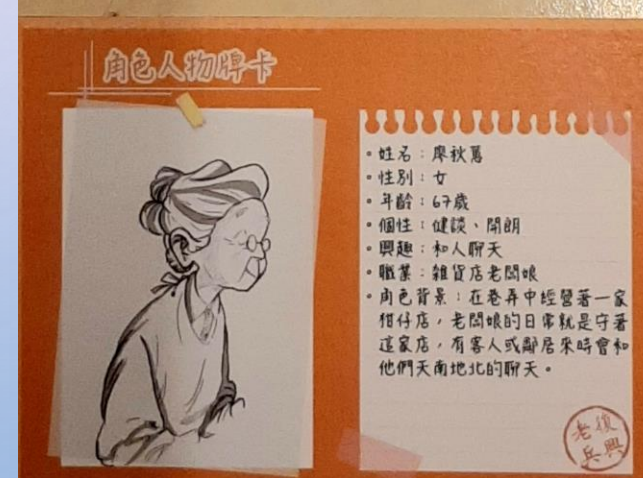 角色人物牌卡
• 姓名：廖秋蔦
• 性別：女
• 年齡：67歲
• 個性：健談、開朗
• 興趣：和人聊天
• 職業：雜貨店老闆娘
• 角色背景：在巷弄中經營著一家
柑仔店，老闆娘的日常就是守著
這家店，有客人或鄰居來時會和
他們天南地北的聊天。
老復
兵興